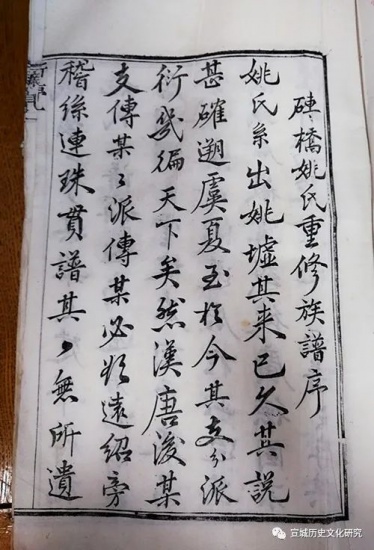 硨橋姚氏重修族譜序
姚氏系出姚墟其来已久其説
甚確遡虞夏至於今其支分派
衍幾徧天下矣然漢唐後某
支傳某〻派傳某必欲遠紹旁
稽絲連珠貫譜其〻無所遺
宣城历史文化研究